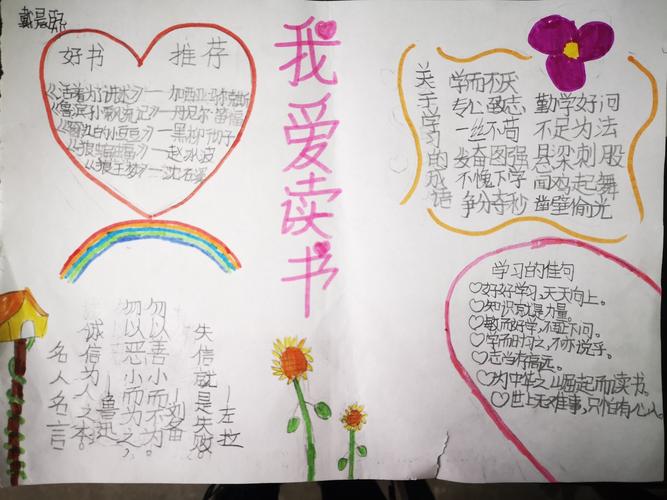 戴晨
好书 推荐
《活着为了讲述》——加西亚·马尔克斯
《鲁滨孙漂流记》—丹尼尔·笛福
《窗边的小豆豆》—黑柳彻子
幸福》—赵冰波
《狼王梦》—沈石溪
我爱读书
关于学习的成语
学而不厌
专心致志 勤学好问
一丝不苟 不足为法
发奋图强 悬梁刺股
不愧下学 闻鸡起舞
争分夺秒 凿壁偷光
名人名言
诚信为人之本。
—鲁迅
勿以恶小而为之，
勿以善小而不为。
—刘备
失信就是失败
—左拉
学习的佳句
♡好好学习，天天向上。
♡知识就是力量。
♡敏而好学，不耻下问。
♡学而时习之，不亦说乎。
♡志当存高远。
♡为中华之崛起而读书。
♡世上无难事，只怕有心人。